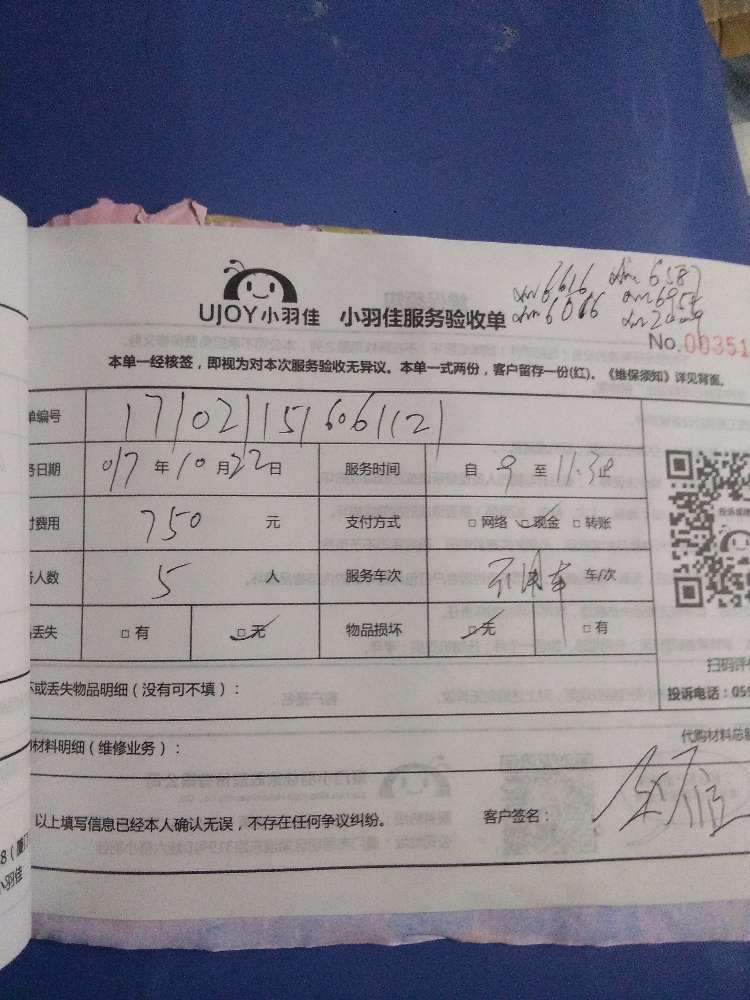 xm6616 xm6587
xm6066 xm6954
xm2009
UJOY小羽佳 小羽佳服务验收单
No.00351
本单一经核签，即视为对本次服务验收无异议。本单一式两份，客户留存一份(红)。《维保须知》详见背面。
单编号 1710211516061121
务日期 017 年 10 月 22 日 服务时间 自 9 至 11:30 止
付费用 750 元 支付方式 □ 网络 ☑ 现金 □ 转账
务人数 5 人 服务车次 不用车 车/次
品丢失 □ 有 ☑ 无 物品损坏 ☑ 无 □ 有
扫码评价
坏或丢失物品明细（没有可不填）：
投诉电话：059
购材料明细（维修业务）：
代购材料总额
以上填写信息已经本人确认无误，不存在任何争议纠纷。 客户签名：
小羽佳